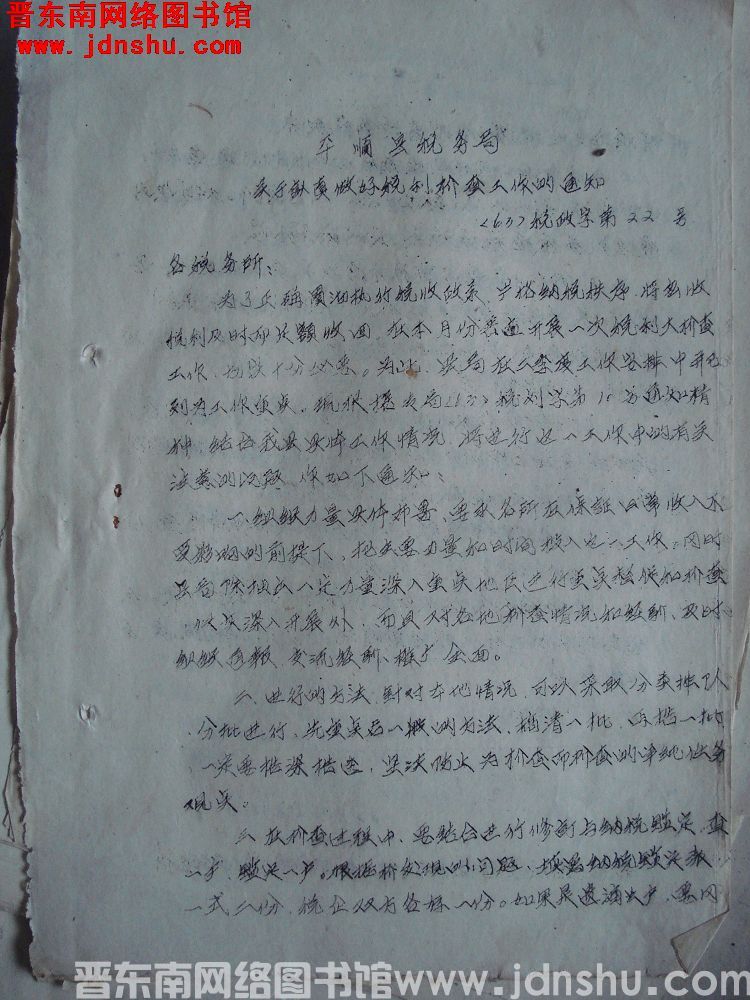 晋东南网络图书馆
www.jdnshu.com
平顺县税务局
关于认真做好税利检查工作的通知
<63>税政字第22号
各税务所:
为了正确贯彻执行税收政策,严格纳税秩序,将应收
税利及时而足额收回,在本月份普遍开展一次税利大检查
工作,十分必要。为此,县局在三季度工作安排中并已
列为工作重点,现根据专局<63>税利字第10号通知精
神,结合我县具体工作情况,将进行这一工作中的有关
问题,作如下通知:
一、组织力量具体部署,要求各所在保证日常收入不
受影响的前提下,把主要力量和时间投入这一工作。同时
县局除抽出一定力量深入重点地区进行重点督促和检查
以及深入开展外,而且对各地检查情况和经验,及时
组织通报,交流经验、推广全面。
二、进行的方法,针对本地情况,可以采取分类排队
分批进行,先重点后一般的方法,查清一批,再查一批
一定要查深查透,坚决防止为检查而检查的单纯任务
观点。
三、在检查进程中,要结合进行修订与纳税鉴定,查
一户,鉴定一户。根据检查发现的问题,填写纳税鉴定表
一式二份,税企双方各存一份。如果是遗漏欠户,要同
晋东南网络图书馆www.jdnshu.com